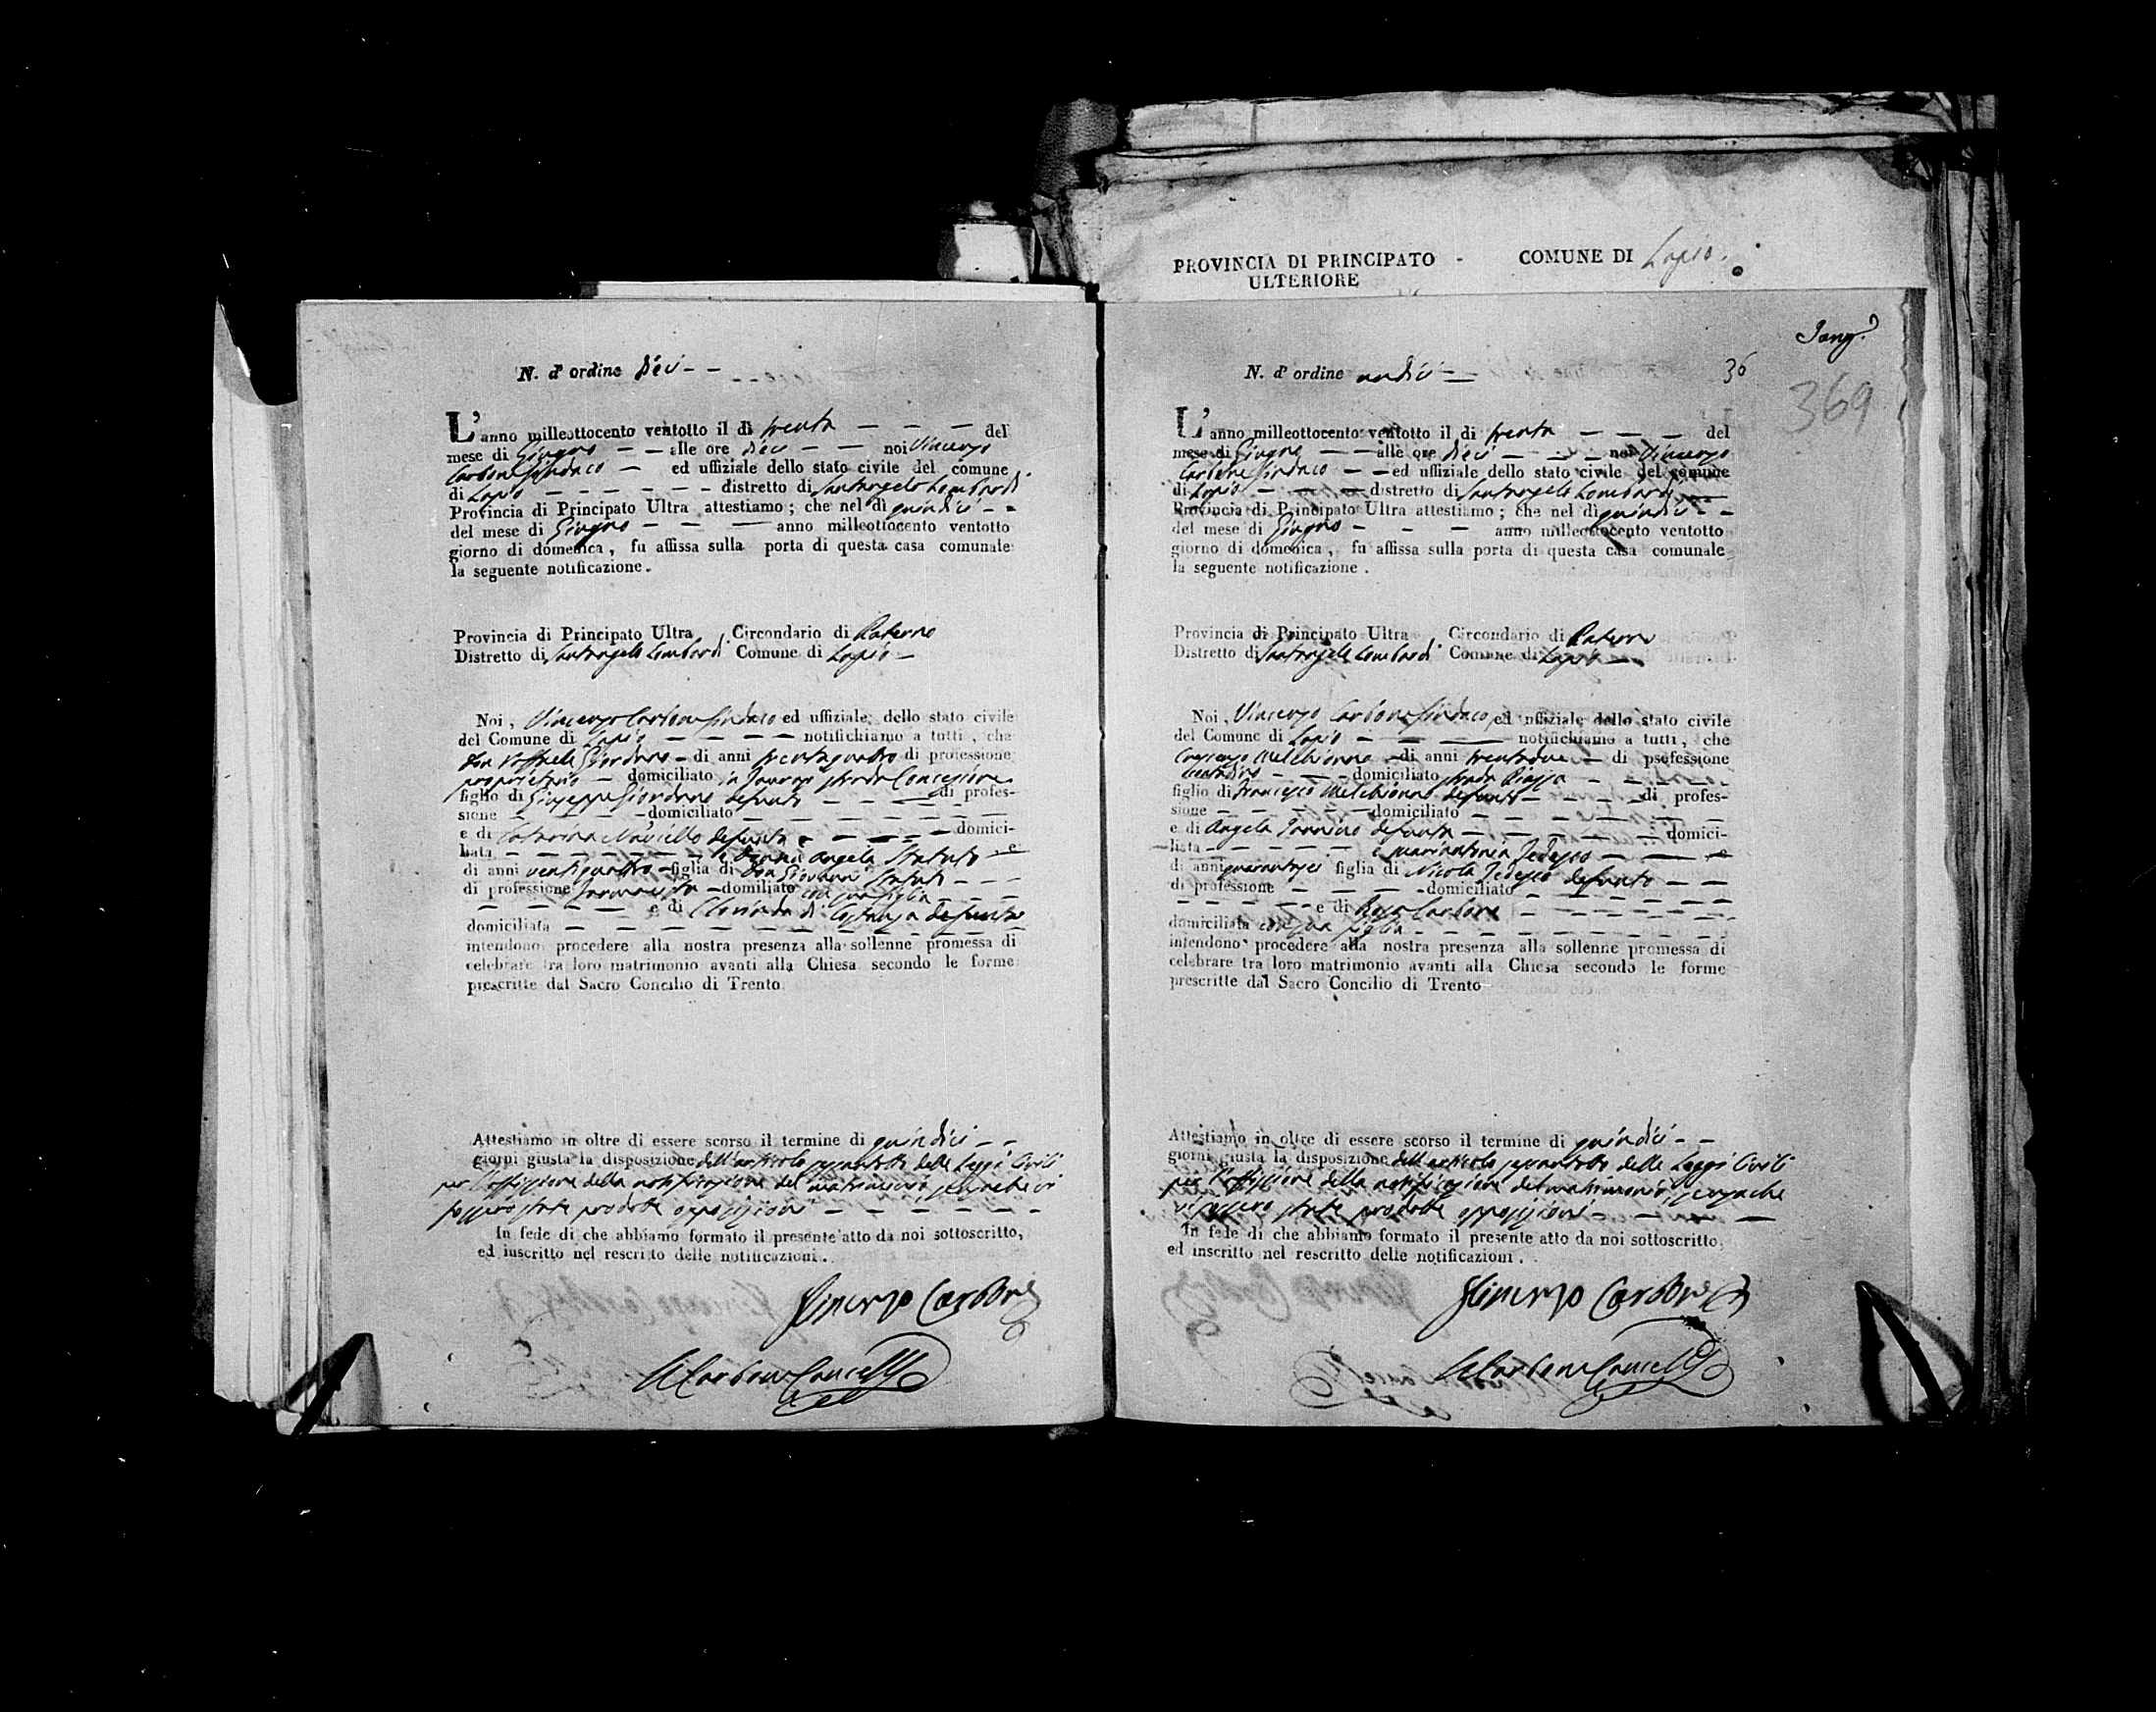 N. d'ordine dieci - -
L'anno milleottocento ventotto il dì trenta - - - del
mese di Giugno - - alle ore dieci - - noi Vincenzo
Carbone Sindaco - ed uffiziale dello stato civile del comune
di Lapio - - - - - - distretto di Santangelo Lombardi
Provincia di Principato Ultra attestiamo ; che nel dì quindici - -
del mese di Giugno - - - anno milleottocento ventotto
giorno di domenica , fu affissa sulla porta di questa casa comunale
la seguente notificazione .
Provincia di Principato Ultra , Circondario di Paterno
Distretto di Santangelo Lombardi . Comune di Lapio -
Noi , Vincenzo Carbone Sindaco ed uffiziale dello stato civile
del Comune di Lapio - - - - - notifichiamo a tutti , che
Don Raffaele Giordano - di anni trentaquattro di professione
proprietario - domiciliato in strada Concezione
figlio di Giuseppe Giordano defunto - - - di profes-
sione - - - - domiciliato - - - - - -
e di Caterina defunta - - - - - domici-
liata - - - - - - e Donna Angela Statuto - e
di anni ventiquattro - figlia di Don Giovanni Statuto - - -
di professione Farmacista - domiliato con sua figlia - - -
- - - - e di Clorinda di Costanza defunta
domiciliata - - - - - - - - - -
intendono procedere alla nostra presenza alla sollenne promessa di
celebrare tra loro matrimonio avanti alla Chiesa secondo le forme
prescritte dal Sacro Concilio di Trento
Attestiamo in oltre di essere scorso il termine di quindici - -
giorni giusta la disposizione dell'articolo sessantotto delle Leggi Civili
per l'affissione della notificazione del matrimonio, senza che vi
fossero state prodotte opposizioni - - - - - -
In fede di che abbiamo formato il presente atto da noi sottoscritto,
ed inscritto nel rescritto delle notificazioni .
Vincenzo Carbone
Carbone Cancell
PROVINCIA DI PRINCIPATO - COMUNE DI Lapio .
ULTERIORE
36
369
N. d'ordine undici - -
L'anno milleottocento ventotto il di trenta - - - del
mese di Giugno - - alle ore dieci - - - noi Vincenzo
Carbone Sindaco - - ed uffiziale dello stato civile del comune
di Lapio - - - distretto di Santangelo Lombardi -
Provincia di Principato Ultra attestiamo ; che nel dì quindici - -
del mese di Giugno - - - anno milleottocento ventotto
giorno di domenica , fu affissa sulla porta di questa casa comunale
la seguente notificazione .
Provincia di Principato Ultra , Circondario di Paterno
Distretto di Santangelo Lombardi . Comune di Lapio -
Noi , Vincenzo Carbone Sindaco, ed uffiziale dello stato civile
del Comune di Lapio - - - notifichiamo a tutti , che
Crescenzo Melchionno - di anni trentadue - di psofessione
contadino - - - domiciliato strada Piazza - - - - -
figlio di Francesco Melchionno defunto - - - - di profes-
sione - - - - - domiciliato - - - - - -
e di Angela defunta - - - - - domici-
liata - - - - - e Mariantonia Tedesco - - - e
di anni quarantasei figlia di Nicola Tedesco defunto - -
di professione - - - - domiciliato - - - - -
- - - - - e di Rosa Carbone - - - - - -
domiciliata con sua figlia - - - - - - - -
intendono procedere alla nostra presenza alla sollenne promessa di
celebrare tra loro matrimonio avanti alla Chiesa secondo le forme
prescritte dal Sacro Concilio di Trento
Attestiamo in oltre di essere scorso il termine di quindici - -
giorni giusta la disposizione dell'articolo sessantotto delle Leggi Civili
per l'affissione della notificazione del matrimonio, senza che
vi fossero state prodotte opposizioni - - - -
In fede di che abbiamo formato il presente atto da noi sottoscritto,
ed inscritto nel rescritto delle notificazioni .
Vincenzo Carbone
Carbone Cancell